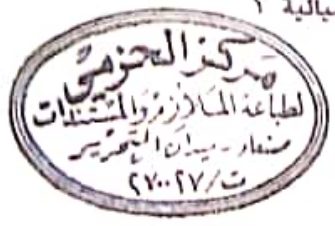 مركز الحزمي
لطباعة الملازم والمستندات
صنعاء - ميدان التحرير
ت/٢٧٠٠٢٧